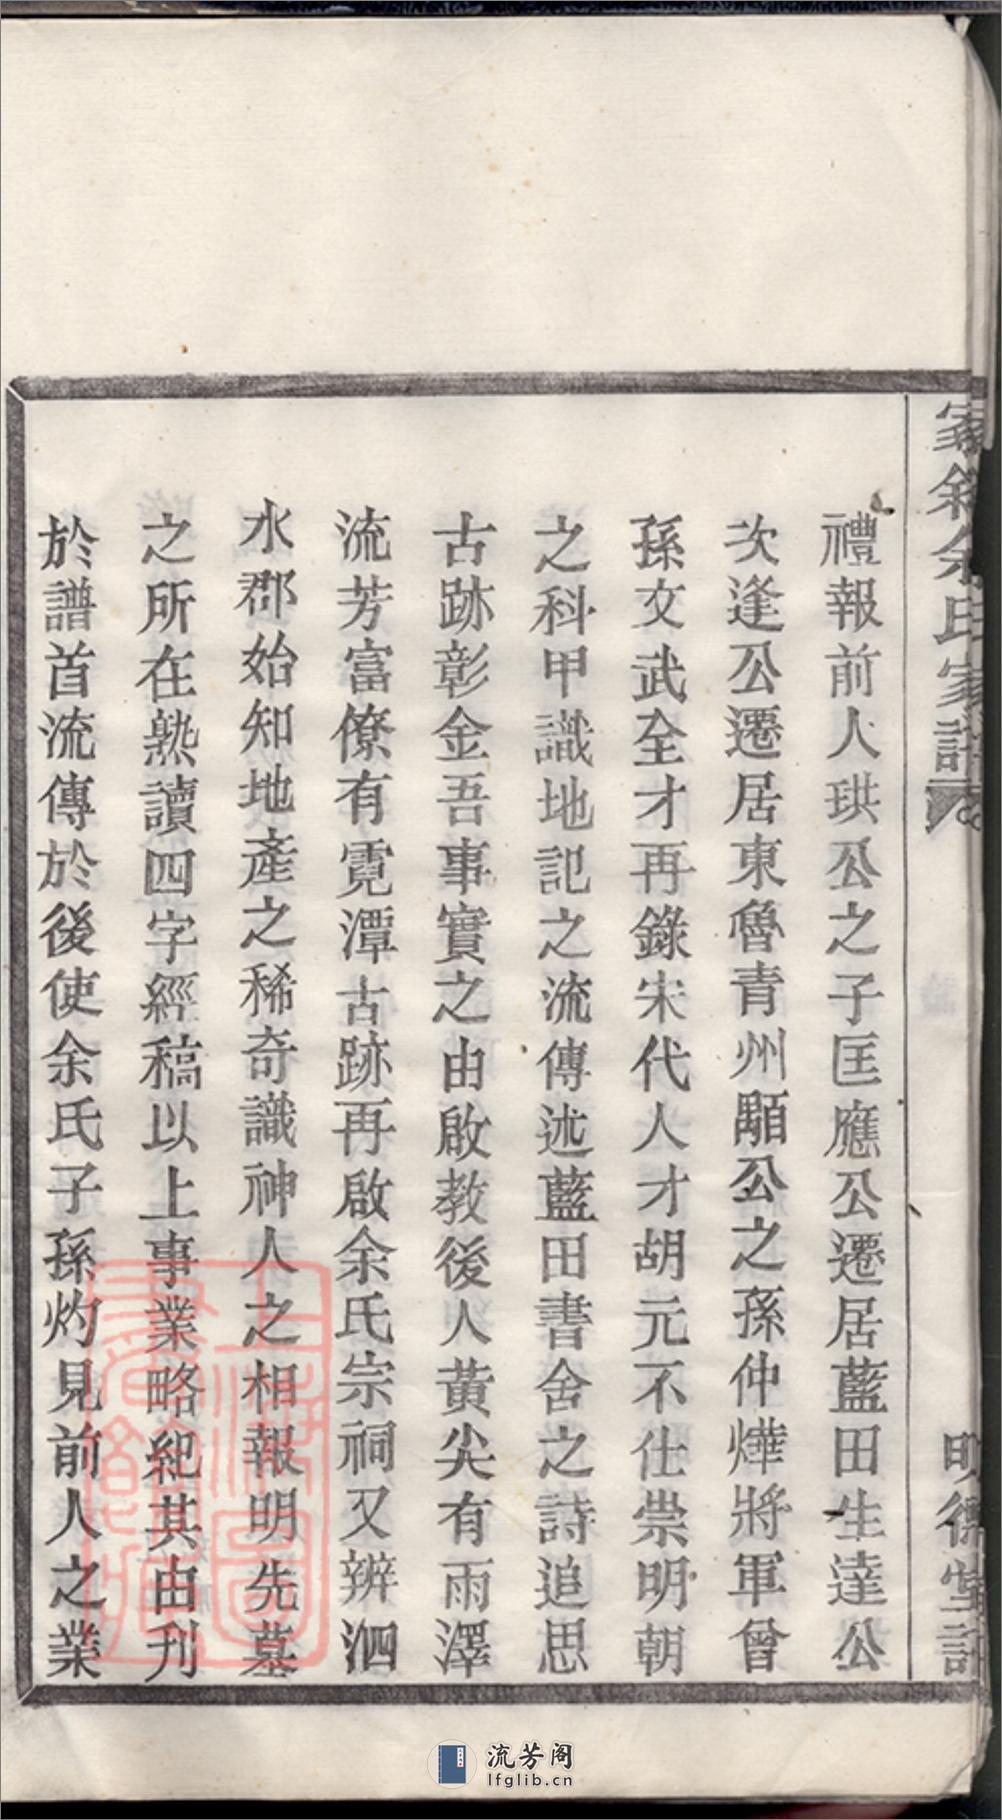 禮報前人珙公之子匡應公遷居藍田生達公
次逢公遷居東魯青州顒公之孫仲燁將軍曾
孫文武全才再錄宋代人才胡元不仕崇明朝
之科甲識地記之流傳述藍田書舍之詩追思
古跡彰金吾事實之由啟教後人黃尖有雨澤
流芳富僚有霓潭古跡再啟余氏宗祠又辨泗
水郡始知地產之稀奇識神人之相報明先墓
之所在熟讀四字經稿以上事業略紀其由刋
於譜首流傳於後使余氏子孫灼見前人之業
余氏家譜
明德堂
上海圖書館藏
流芳阁
lfglib.cn